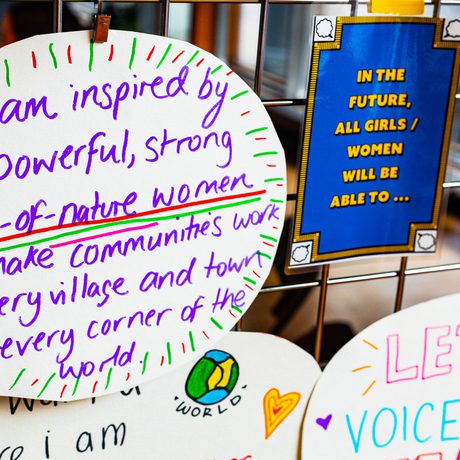 am inspired by
powerful, strong
-of-nature women
make communities work
ery village and town
every corner of the
world.
IN THE
FUTURE,
ALL GIRLS /
WOMEN
WILL BE
ABLE TO ...
WORLD
re i am
LET
VOICE